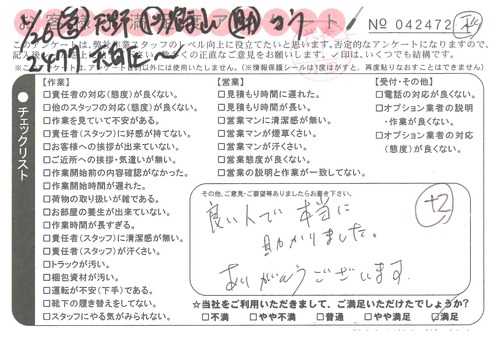 お客様不満足度アンケート No 042472
このアンケートは、弊社作業スタッフのレベル向上に役立てたいと思います。否定的なアンケートになりますので、
チェックリスト
【作業】
□責任者の対応(態度)が良くない。
□他のスタッフの対応(態度)が良くない。
□作業を見ていて不安がある。
□責任者(スタッフ)に好感が持てない。
□お客様への挨拶が出来ていない。
□ご近所への挨拶・気遣いが無い。
□作業開始前の内容確認がなかった。
□作業開始時間が遅れた。
□荷物の取り扱いが雑である。
□お部屋の養生が出来ていない。
□作業時間が長すぎる。
□責任者(スタッフ)に清潔感が無い。
□責任者(スタッフ)が汗くさい。
□トラックが汚い。
□梱包資材が汚い。
□運転が不安(下手)である。
□靴下の履き替えをしてない。
□スタッフにやる気がみられない。
【営業】
□見積もり時間に遅れた。
□見積もり時間が長い。
□営業マンに清潔感が無い。
□営業マンが煙草くさい。
□営業マンが汗くさい。
□営業態度が良くない。
□営業の説明と作業が一致してない。
【受付・その他】
□電話の対応が良くない。
□オプション業者の説明
・作業が良くない。
□オプション業者の対応
(態度)が良くない。
その他、ご意見・ご要望等ありましたらお書き下さい。
良い人で本当に
助かりました。
ありがとうございます。
☆当社をご利用いただきまして、ご満足いただけたでしょうか?
□不満 □やや不満 □普通 □やや満足 ☑満足